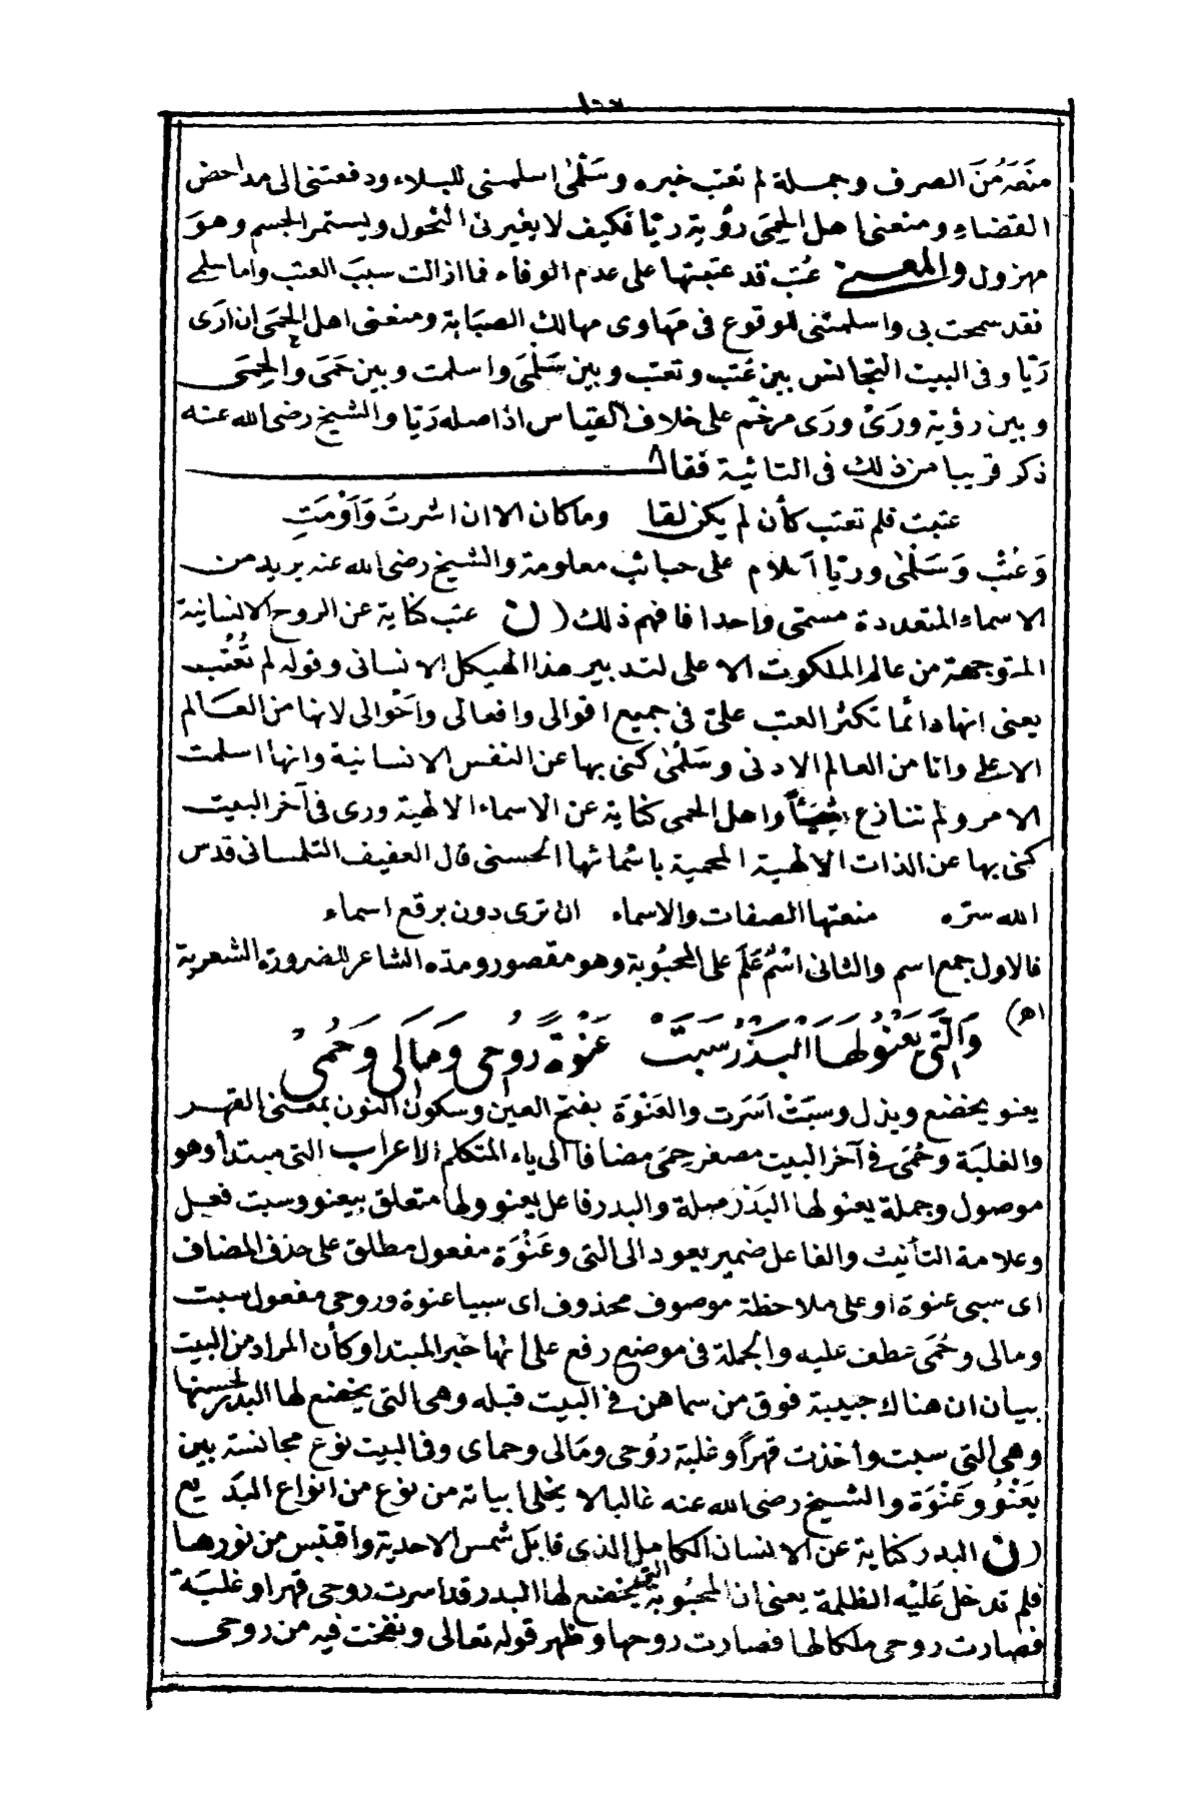 منعه من الصرف وجملة لم تعتب خبره وسَلْمٰى اسلمتنى للبلاء ودفعتنى الى مداحض
القضاء ومنعنى اهل الحِمَى رؤية ريّا فكيف لا يغيرنى النحول ويستمر الجسم وهوَ
مهزول والمعــنى عُتب قد عتبتها على عدم الوفاء فما ازالت سببَ العتب واما سلمى
فقد سمحت بى واسلمتنى للوقوع فى مَهاوى مهالك الصبَابة ومنعنى اهل الحِمَى ان ارَى
رَيّا وفى البيت التجانس بين عُتب وتعتب وبين سَلْمَى واسلمت وبين حَمَى والحِمَى
وبين رؤية ورَىْ ورَى مرخّم على خلاف القياس اذ اصله رَيّا والشيخ رضى الله عنه
ذكر قريبا من ذلك فى التائية فقال
عتبت فلم تعتب كأن لم يكن لقا وما كان الا ان اشرتُ وَاَوْمَتِ
وَعُتْب وَسَلْمٰى وريّا اَعلام على حبائب معلومة والشيخ رضى الله عنه يريد من
الاسماء المتعددة مسمّى واحدا فافهم ذلك (ن عتب كناية عن الروح الانسانية
المتوجهة من عالم الملكوت الاعلى لتدبير هذا الهيكل الانسانى وقوله لم تُعْتب
يعنى انها دائما تكثر العتب علىّ فى جميع اقوالى وافعالى واَحْوالى لانها من العالم
الاعلى وانا من العالم الادنى وسَلْمٰى كنى بها عن النفس الانسانية وانها اسلمت
الامر ولم تنازع شيئاً واهل الحمى كناية عن الاسماء الالهية ورى فى آخر البيت
كنى بها عن الذات الالهية المحمية باسمائها الحسنى قال العفيف التلمسانى قدس
الله سرّه منعتها الصفات والاسماء ان ترى دون برقع اسماء
فالاول جمع اسم والثانى اسْمُ عَلَم على المحبُوبة وهو مقصور ومدّه الشاعر للضرورة الشعرية
اهـ)
وَالَّتِى يَعْنُو لَهَا البَدْرُ سَبَتْ عَنْوَةً رُوحِى وَمَالِى وَحُمَىْ
يعنو يخضع ويذل وسبَتْ اَسَرت والعَنْوَة بفتح العين وسكون النون بمعنى القهر
والغلبَة وحُمَىّ فى آخر البيت مصغر حِمَى مضافا الى ياء المتكلم الاعراب التى مبتدأ وهو
موصول وجملة يعنو لها البَدْر صلة والبدر فاعل يعنو ولها متعلق بيعنو وسبت فعل
وعلامة التأنيث والفاعل ضمير يعود الى التى وعَنْوَة مفعول مطلق على حذف المضاف
اى سبى عنوة او على ملاحظة موصوف محذوف اى سبيا عنوة وروحى مفعول سبت
ومالى وحُمَى عطف عليه والجملة فى موضع رفع على انها خبر المبتدا وكأن المراد من البيت
بيان ان هناك حبيبة فوق من سماهن فى البيت قبله وهى التى يخضع لها البدر لحسنها
وهى التى سبت وأخذت قهراً وغلبة رُوحى ومَالى وحماى وفى البيت نوع مجانسة بين
يَعْنُو وعَنْوَة والشيخ رضى الله عنه غالبا لا يخلى ابياته من نوع من انواع البدَيع
(ن البدر كناية عن الانسان الكامل الذى قابل شمس الاحدية واقتبس من نورها
فلم تدخل عَليْه الظلمة يعنى ان المحبُوبة التى يخضع لها البدر قد اسرت روحى قهرا وغلبَة
فصارت روحى ملكا لها فصارت روحها وظهر قوله تعالى ونفخت فيه من روحى